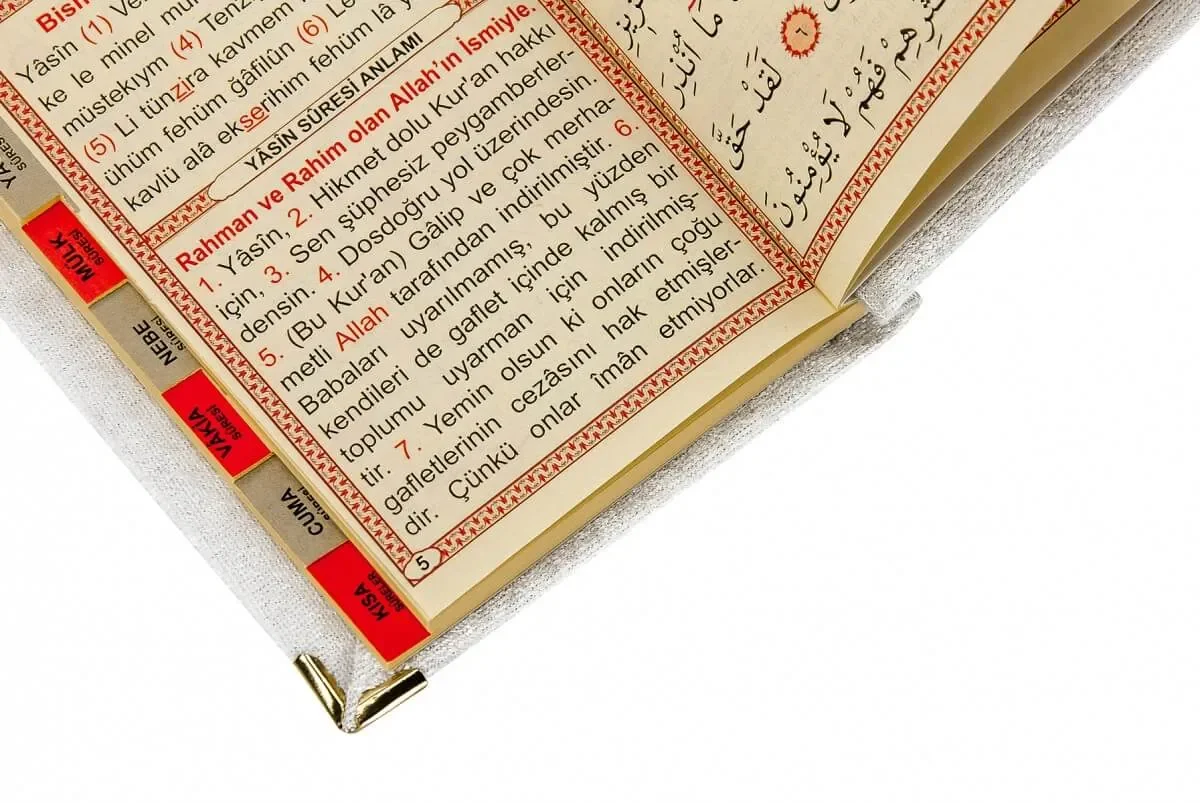 Bism
Yâsîn (1) Ve
ke le minel mur
müstekıym (4) Tenzî
(5) Li tünzira kavmem m
ühüm fehüm ğâfilûn (6) Le
kavlü alâ ekserihim fehüm lâ y
YÂSÎN SÛRESİ ANLAMI
Rahman ve Rahim olan Allah'ın İsmiyle.
1. Yâsin, 2. Hikmet dolu Kur'an hakkı
için, 3. Sen şüphesiz peygamberler-
densin. 4. Dosdoğru yol üzerindesin.
5. (Bu Kur'an) Gâlip ve çok merha-
metli Allah tarafından indirilmiştir. 6.
Babaları uyarılmamış, bu yüzden
kendileri de gaflet içinde kalmış bir
toplumu uyarman için indirilmiş-
tir. 7. Yemin olsun ki onların çoğu
gafletlerinin cezâsını hak etmişler-
dir. Çünkü onlar îmân etmiyorlar.
5
مَا اُنْذِرَ
٦
لَقَدْ حَقَّ
فَهُمْ لَا يُؤْمِنُونَ
YA
SÛRESİ
MÜLK
SÛRESİ
NEBE
SÛRESİ
VÂKIA
SÛRESİ
CUMA
SÛRESİ
KISA
SÛRELER